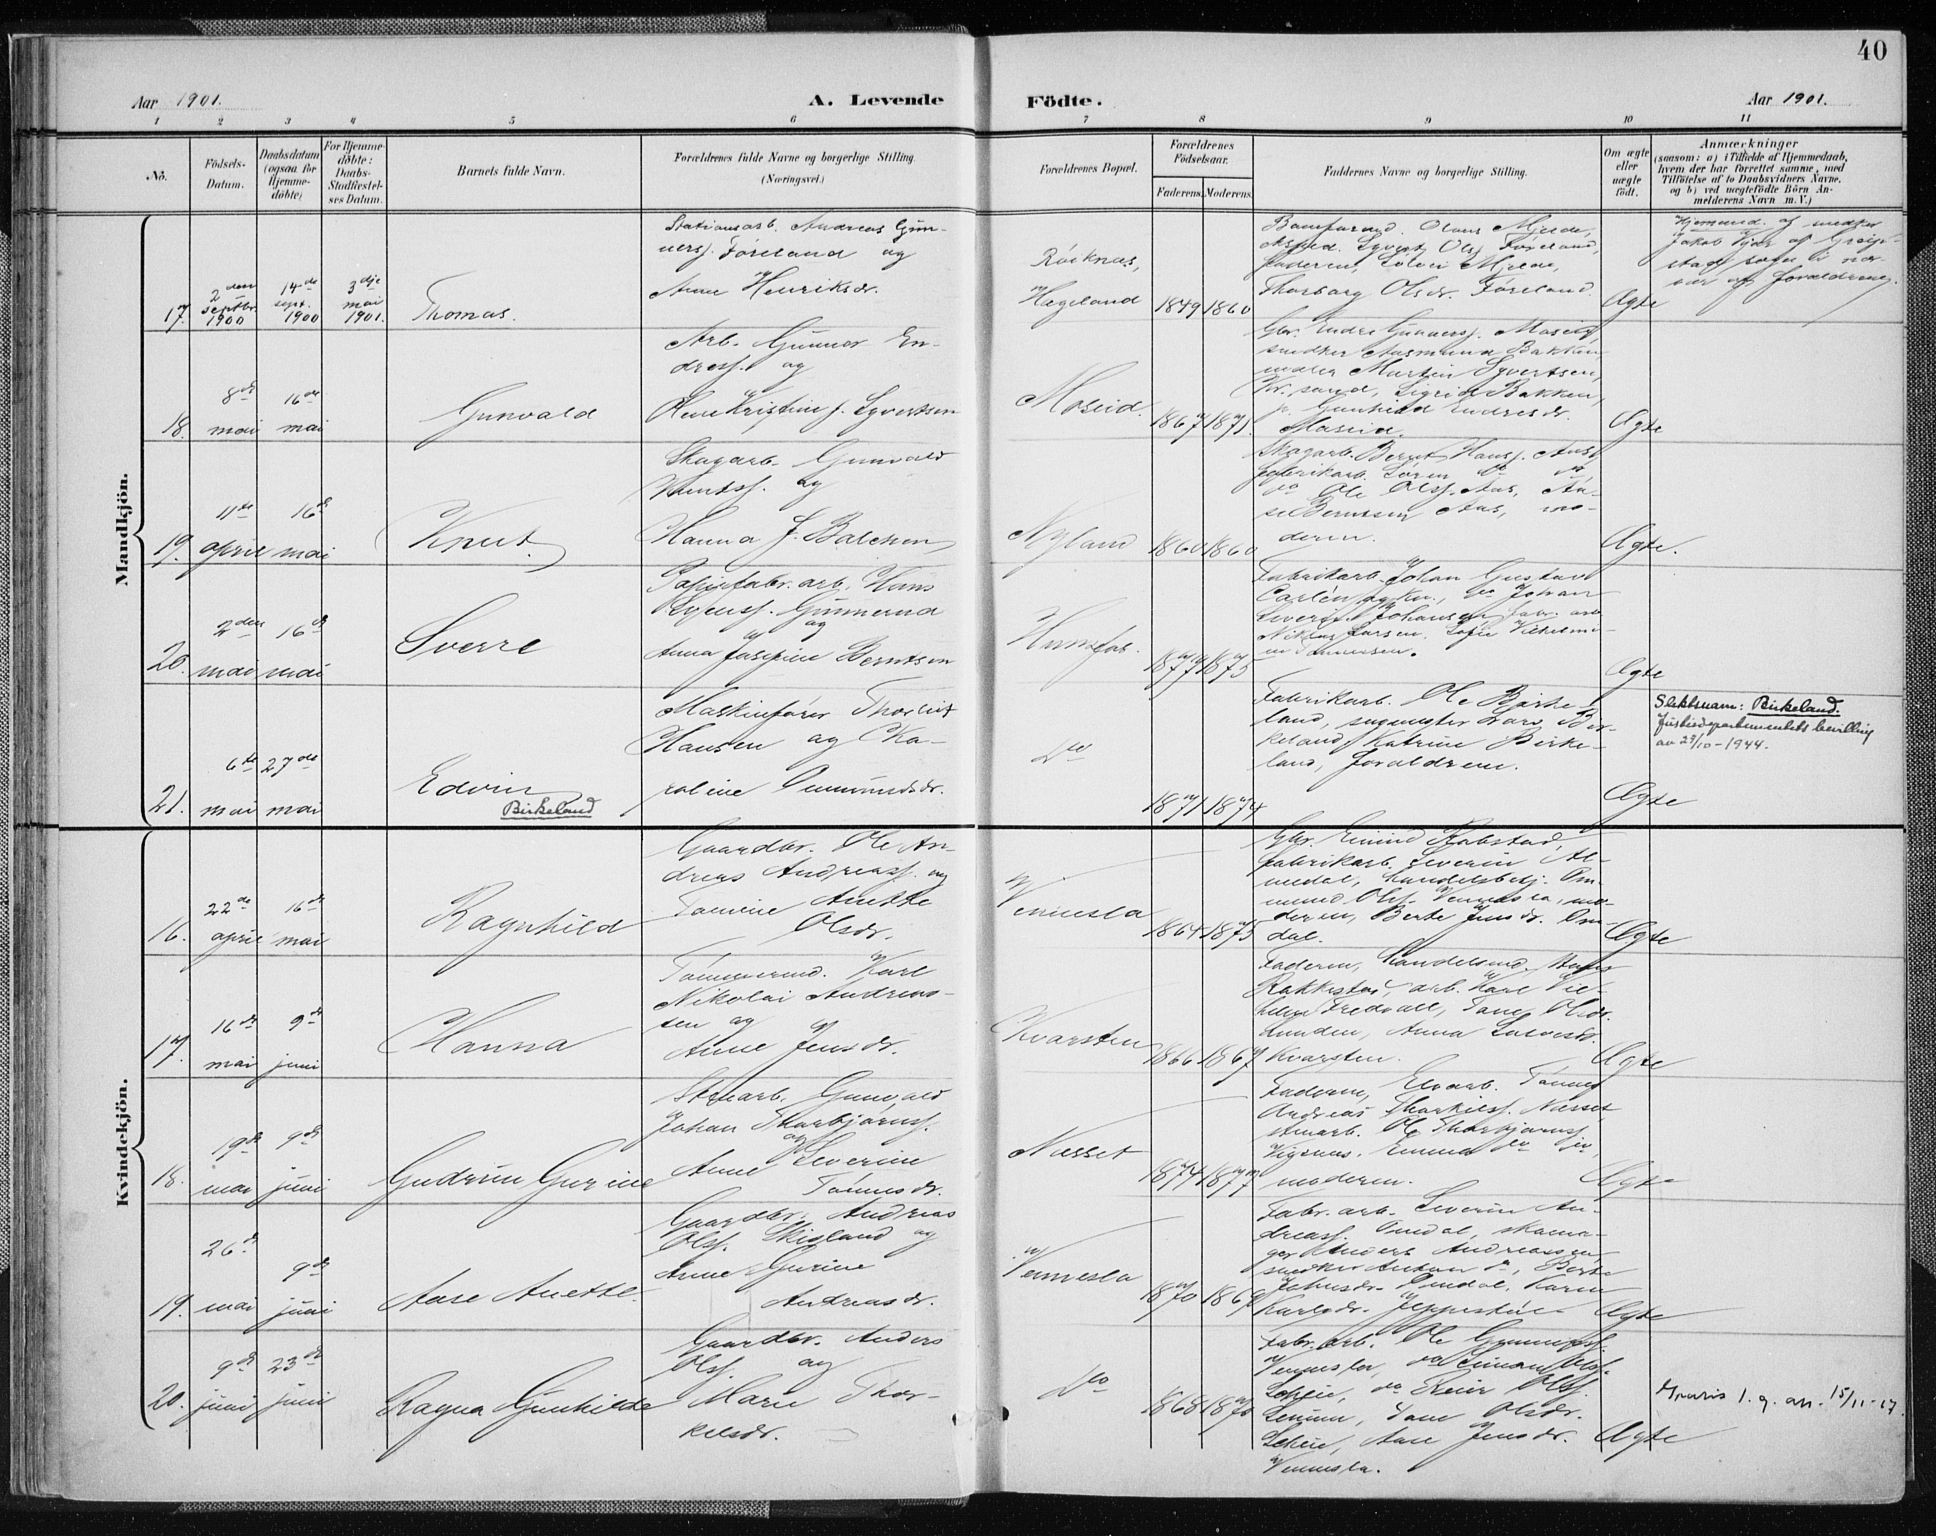 40
Aar 1901.
A. Levende
Födte.
Aar 1901.
1 2 3 4 5 6 7 8 9 10 11
No.
Födsels-
Datum.
Daabsdatum
(ogsaa for
Hjemme-
døbte)
For Hjemme-
døbte:
Daabs-
Stadfæstel-
ses Datum.
Barnets fulde Navn.
Forældrenes fulde Navne og borgerlige Stilling.
(Næringsvei.)
Forældrenes Bopæl.
Forældrenes
Födselsaar.
Faderens. Moderens.
Faddernes Navne og borgerlige Stilling.
Om ægte
eller
uægte
født.
Anmærkninger
(saasom: a) i Tilfælde af Hjemmedaab,
hvem der har forrettet samme, med
Tilføielse af to Daabsvidners Navne,
og b) ved uægtefödte Börn An-
melderens Navn m. V.)
Mandkjön.
17.
2den
septbr.
1900
14de
sept.
1900
3dje
mai
1901.
Thomas.
Stationsarb. Andreas Gun-
nersf. Føreland og
Anne Henriksdr.
Røiknæs,
Hægeland
1849 1860
Olaus Mjelde,
Syvert Olsf. Føreland,
faderen, Mjelde,
Thorborg Olsdr. Føreland.
Ægte
Hjemmed. af snedker
Jakob af Greip-
stad sogn i nær-
vær af forældrene.
18.
8de
mai
16de
mai
Gunvald
Arb. Gunner En-
dresf. og
Kristine f. Syvertsen
Moseid.
1867 1871.
Gbr. Endre Gunnersf. Moseid,
snedker Aasmund Bakken,
maler Martin Syvertsen,
Kr.sand, Sigrid Bakken,
p. Gunhild Endresdr.
Moseid.
Ægte
19.
11te
april
16de
mai
Knut
Skogarb. Gunvald
Knutsf. og
Hanna f. Balchen
Nyland
1860 1860
Skogarb. Bernt Hansf. Aas,
fabrikarb. Søren do do
do Ole Olsf. Aas,
Berntsen Aas, mo-
deren.
Ægte.
20.
2den
mai
16de
mai
Sverre
Papirfabr.arb. Hans
Gunnerud
og
Anna Josefine Berntsen
Hunsfos.
1877 1875
Fabrikarb. Johan Gustav
Carlén do Johan
Severin Johansen, fabr.arb.
Niklas Larsen, Sofie Vilhelmi-
ne
Ægte
21.
6te
mai
27de
mai
Edvin
Birkeland
Maskinfører Thorleif
Hansen og Ka-
roline Ommundsdr.
Do
1871 1874
Fabrikarb. Ole Birke-
land, sagmester Lars Bir-
keland, Katrine Birke-
land, forældrene.
Ægte
Slektsnavn: Birkeland.
Justisdepartementets bevilling
av 23/10-1944.
Kvindekjön.
16.
22de
april
16de
mai
Ragnhild
Gaardbr. Ole An-
dreas Andreasf. og
Tomine Anette
Olsdr.
Vennesla
1864 1875
Gbr. Eivind Robstad,
fabrikarb. Severin Al-
medal, handelsbetj. Om-
mund Olsf. Vennesla, mo-
deren, Berte Jensdr. Om-
dal.
Ægte
17.
16de
mai
9de
juni
Hanna
Tømmermd. Karl
Nikolai Andreas-
sen og
Anne Jensdr.
Kvarsten
1866 1867
Faderen, Handelsmd. Hans
Rakkestad, arb. Karl Vil-
helm Fredvall, Tone Olsdr.
Lunden, Anna
Kvarsten.
Ægte
18.
19de
mai
9de
juni
Gudrun Gurine
Stenarb. Gunvald
Johan Thorbjørnsf.
og
Anne Severine
Tønnesdr.
Næsset
1874 1877
Faderen, Elvarb. Tønnes
Andreas Thorkilsf. Næsset,
stenarb. Ole Thorbjørnsf.
Vigsnes, Emma do do,
moderen.
Ægte
19.
26de
mai
9de
juni
Aase Anette
Gaardbr. Andreas
Olsf. Skisland og
Anne Gurine
Andreasdr.
Vennesla
1870 1869
Fabr.arb. Severin An-
dreasf. Omdal, skoma-
ger Anders Andreassen,
snedker Anton do, Berte
Jensdr. Omdal, Karen
Karlsdr. Jeppestøl
Ægte
20.
9de
juni
23de
juni
Ragna Gunhilde
Gaardbr. Anders
Olsf. og
Marie Thor-
kelsdr.
Do
1868 1870
Fabr.arb. Ole Gunnufsf.
Vennesla, do Simon Olsf.
do Olsf.
Tone Olsdr.
Aase Jensdr.
Vennesla.
Ægte
Gratis 1. g. att. 15/11-17.